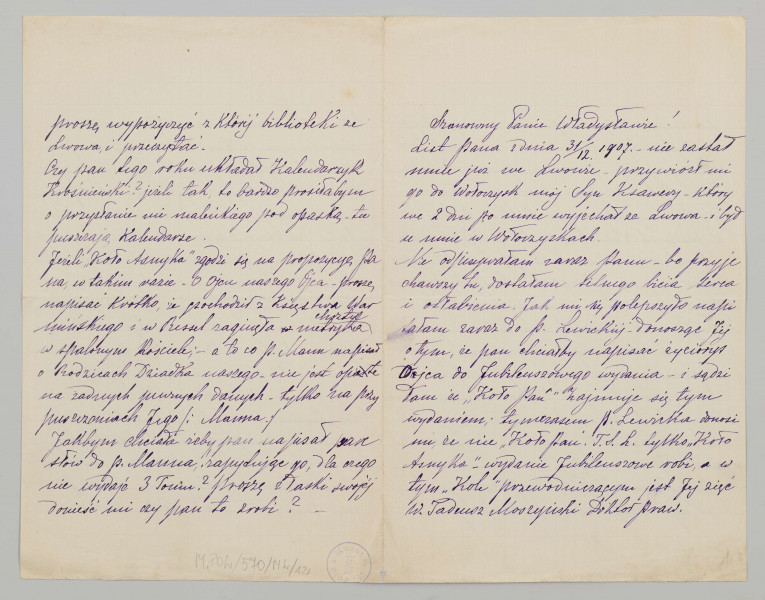 Szanowny Panie Władysławie!
List pana z dnia 31/12 1907. - nie zastał
mnie już we Lwowie - przywiózł mi
go do Wołoczysk mój Syn Ksawery - który
we 2 dni po mnie wyjechał ze Lwowa - i był
u mnie w Wołoczyskach.
Nie odpisywałam zaraz Panu - bo przyje
chawszy tu, dostałam silnego bicia serca
i osłabienia. Jak mi się polepszyło napi
sałam zaraz do p. Lewickiej - donosząc Jej
o tym, że pan chciałby napisać życiorys
Ojca do Jubileuszowego wydania - i sądzi
łam że „Koło pań" zajmuje się tym
wydaniem; tymczasem p. Lewicka donosi
mi że nie „Koło pań. T.S.L. tylko „Koło
Asnyka" - wydanie Jubileuszowe robi, a w
tym „Kole" przewodniczącym jest Jej zięć
W. Tadeusz Moszyński Doktór praw.
proszę wypożyczyć z której biblioteki ze
Lwowa i przeczytać.
Czy pan tego roku układał Kalendarzyk
Krośnieński? jeżeli tak, to bardzo prosiłabym
o przysłanie mi maleńkiego pod opaską - tu
puszczają Kalendarze.
Jeżeli „Koło Asnyka" zgodzi się na propozycyę Pa
na, w takim razie - O Ojcu naszego Ojca - proszę
napisać krótko, że pochodził z Księstwa War
mińskiego i w Ressel zaginęła metryka chrztu
w spalonym Kościele; - a to co p. Mann napisał
o rodzicach Dziadka naszego - nie jest oparte
na żadnych pewnych danych - tylko na przy
puszczeniach Jego (: Manna.)
Jakbym chciała żeby pan napisał parę
słów do p. Manna, zapytując go, dla czego
nie wydaje 3 Tomu? Proszę z łaski swojej
donieść mi czy pan to zrobi? -
M.POW/570/ML/121